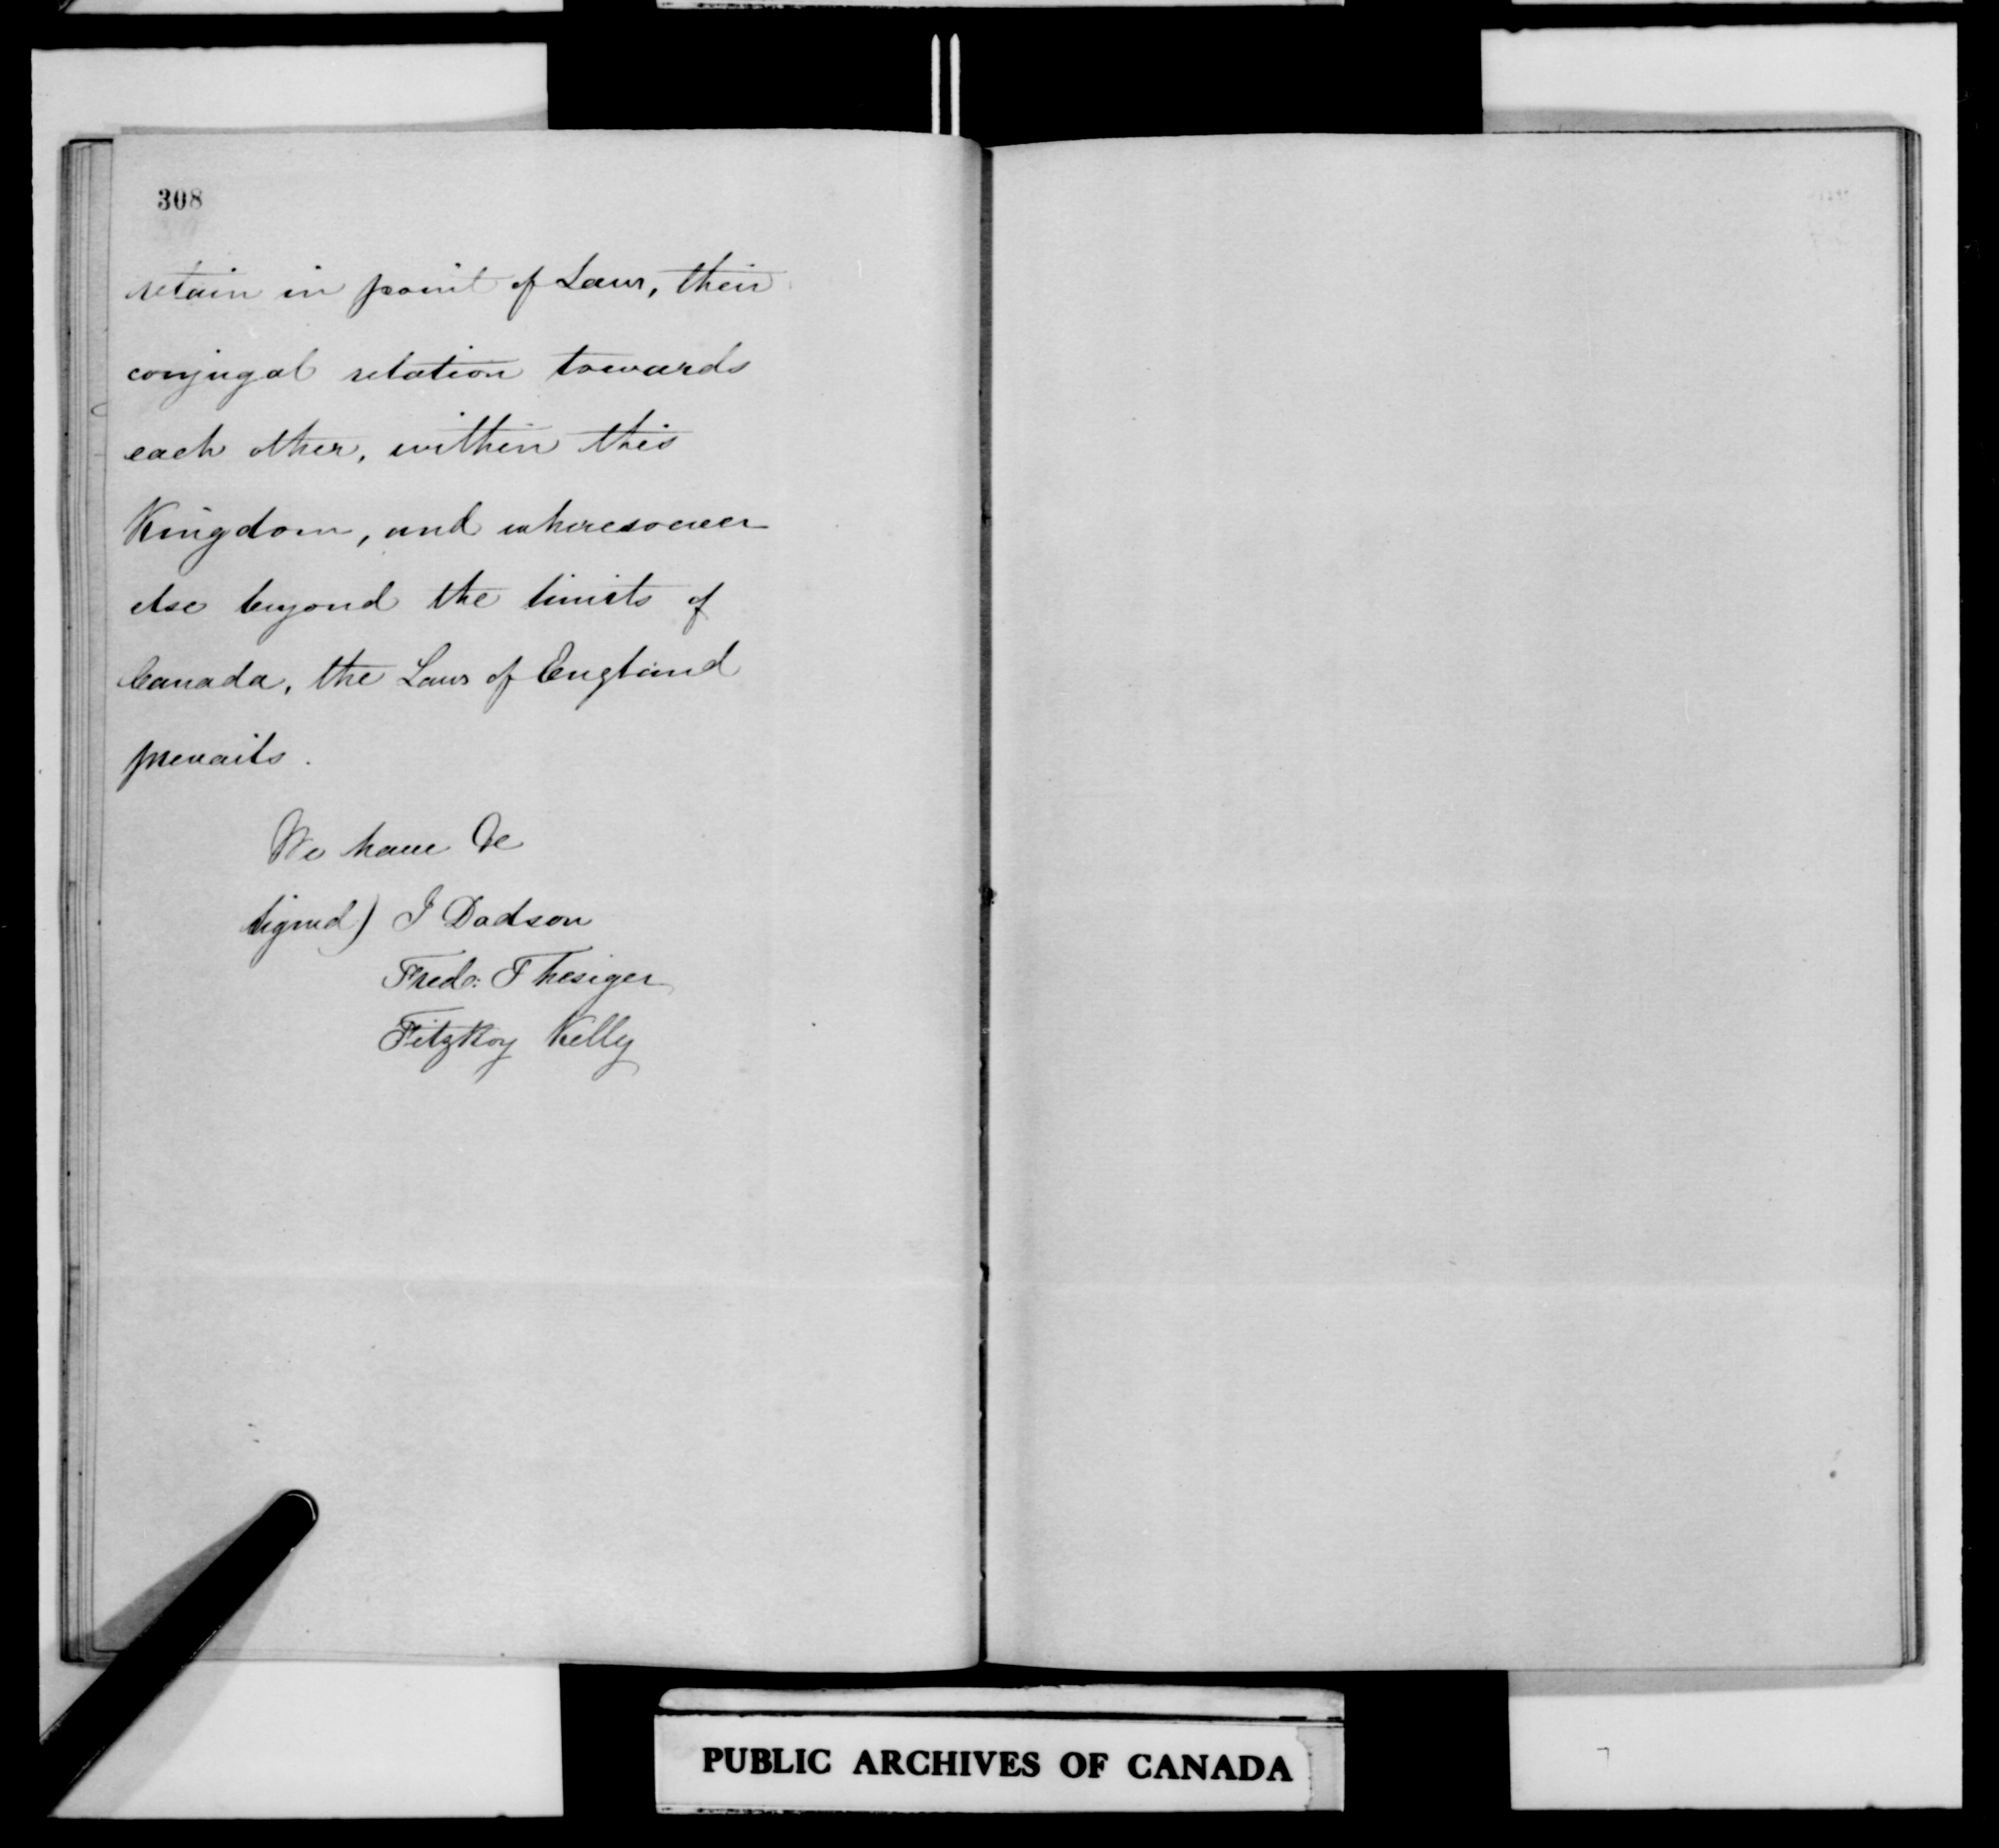 308
retain in point of Law, their
conjugal relation towards
each other, within this
Kingdom, and wheresoever
else beyond the limits of
Canada, the Law of England
prevails.
We have &c
signed) J Dodson
Fred: Thesiger
FitzRoy Kelly
PUBLIC ARCHIVES OF CANADA